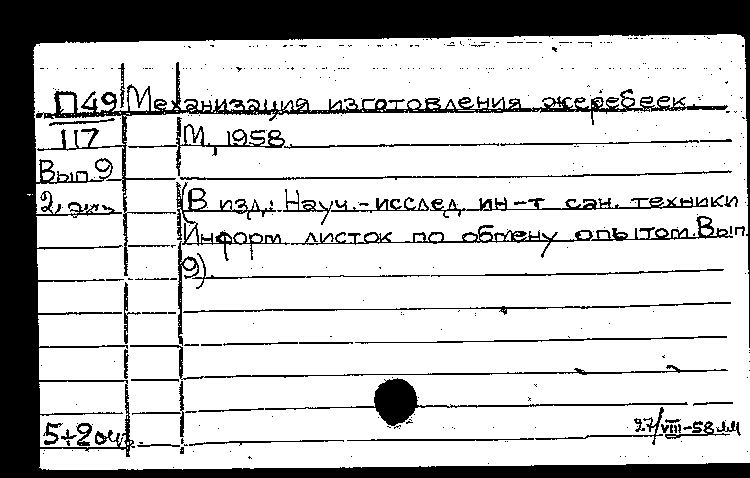 П49 Механизация изготовления жеребеек.
117 М., 1958.
Вып.9
2, экз (В изд.: Науч.-исслед. ин-т сан. техники
Информ. листок по обмену опытом. Вып.
9).
5+2
27/VIII-58